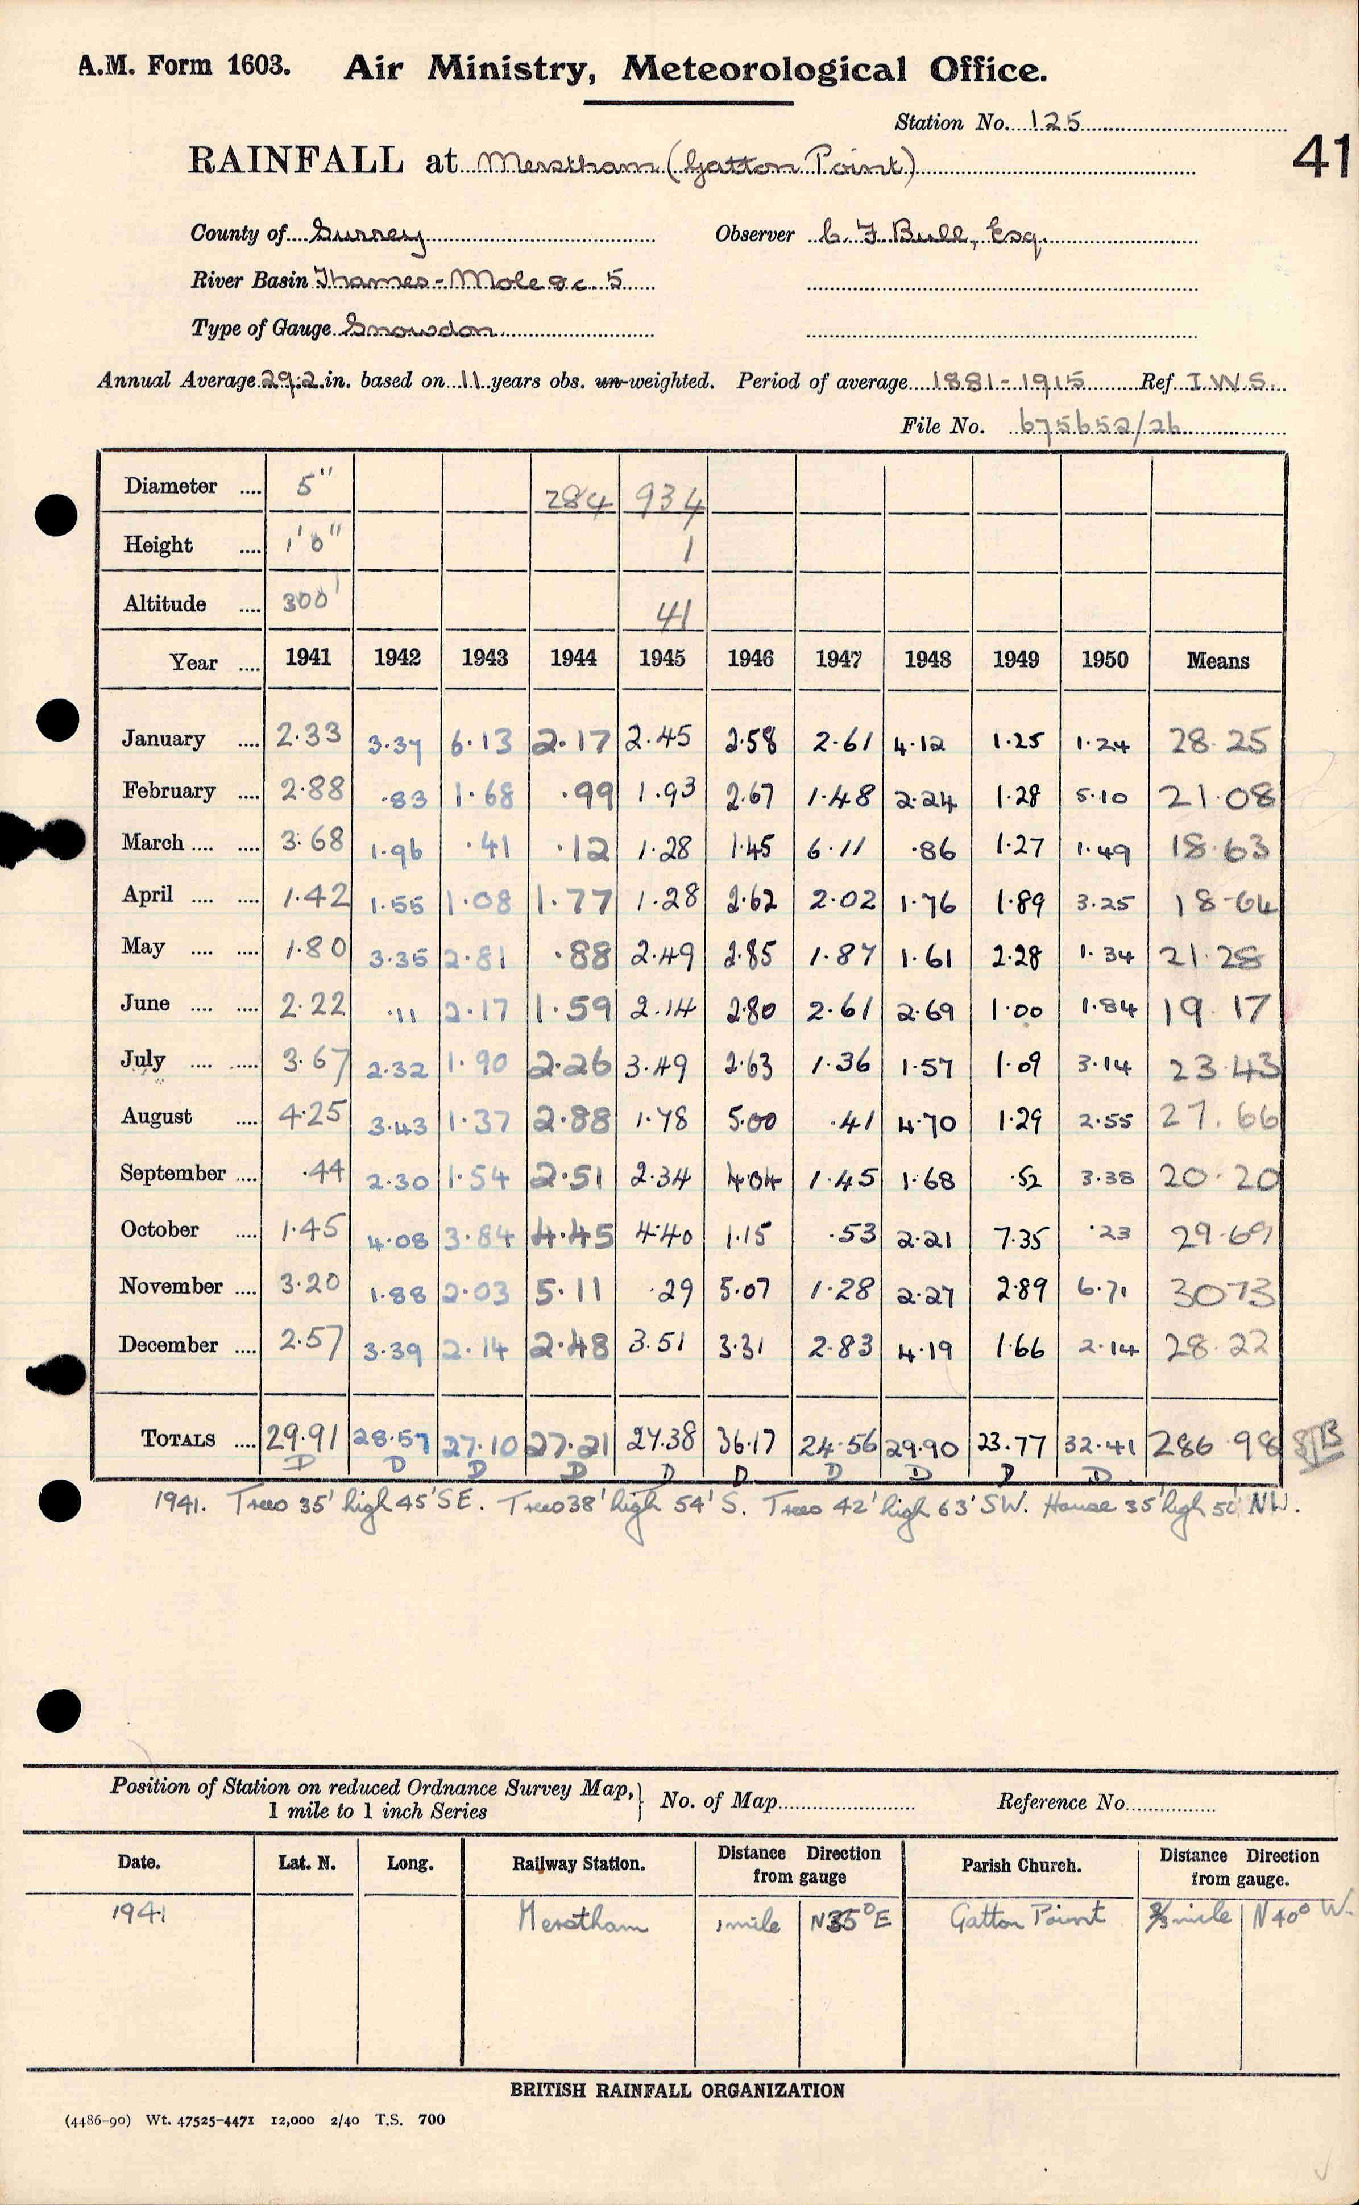 A.M. Form 1603. Air Ministry, Meteorological Office.
Station No. 125
41
RAINFALL at Merstham (Gatton Point)
County of Surrey Observer C. F. Bull, Esq.
River Basin Thames - Mole &c. 5
Type of Gauge Snowdon
Annual Average 29.2 in. based on 11 years obs. un-weighted. Period of average 1881-1915 Ref I.W.S.
File No. 675652/26
Diameter .... 5" 284 934
Height .... 1'0" 1
Altitude .... 300' 41
Year .... 1941 1942 1943 1944 1945 1946 1947 1948 1949 1950 Means
January .... 2.33 3.37 6.13 2.17 2.45 2.58 2.61 4.12 1.25 1.24 28.25
February .... 2.88 .83 1.68 .99 1.93 2.67 1.48 2.24 1.28 5.10 21.08
March .... .... 3.68 1.96 .41 .12 1.28 1.45 6.11 .86 1.27 1.49 18.63
April .... .... 1.42 1.55 1.08 1.77 1.28 2.62 2.02 1.76 1.89 3.25 18.64
May .... .... 1.80 3.35 2.81 .88 2.49 2.85 1.87 1.61 2.28 1.34 21.28
June .... .... 2.22 .11 2.17 1.59 2.14 2.80 2.61 2.69 1.00 1.84 19.17
July .... .... 3.67 2.32 1.90 2.26 3.49 2.63 1.36 1.57 1.09 3.14 23.43
August .... 4.25 3.43 1.37 2.88 1.78 5.00 .41 4.70 1.29 2.55 27.66
September .... .44 2.30 1.54 2.51 2.34 4.04 1.45 1.68 .52 3.38 20.20
October .... 1.45 4.08 3.84 4.45 4.40 1.15 .53 2.21 7.35 .23 29.69
November .... 3.20 1.88 2.03 5.11 .29 5.07 1.28 2.27 2.89 6.71 3073
December .... 2.57 3.39 2.14 2.48 3.51 3.31 2.83 4.19 1.66 2.14 28.22
TOTALS .... 29.91 28.57 27.10 27.21 27.38 36.17 24.56 29.90 23.77 32.41 286.98
D D D D D D D D D D
1941. Trees 35' high 45' SE. Trees 38' high 54' S. Trees 42' high 63' SW. House 35' high 50' NW.
Position of Station on reduced Ordnance Survey Map, 1 mile to 1 inch Series } No. of Map Reference No.
Date. Lat. N. Long. Railway Station. Distance Direction from gauge Parish Church. Distance Direction from gauge.
1941 Merstham 1 mile N35°E Gatton Point 2/3 mile N40°W.
BRITISH RAINFALL ORGANIZATION
(4486-90) Wt. 47525-4471 12,000 2/40 T.S. 700